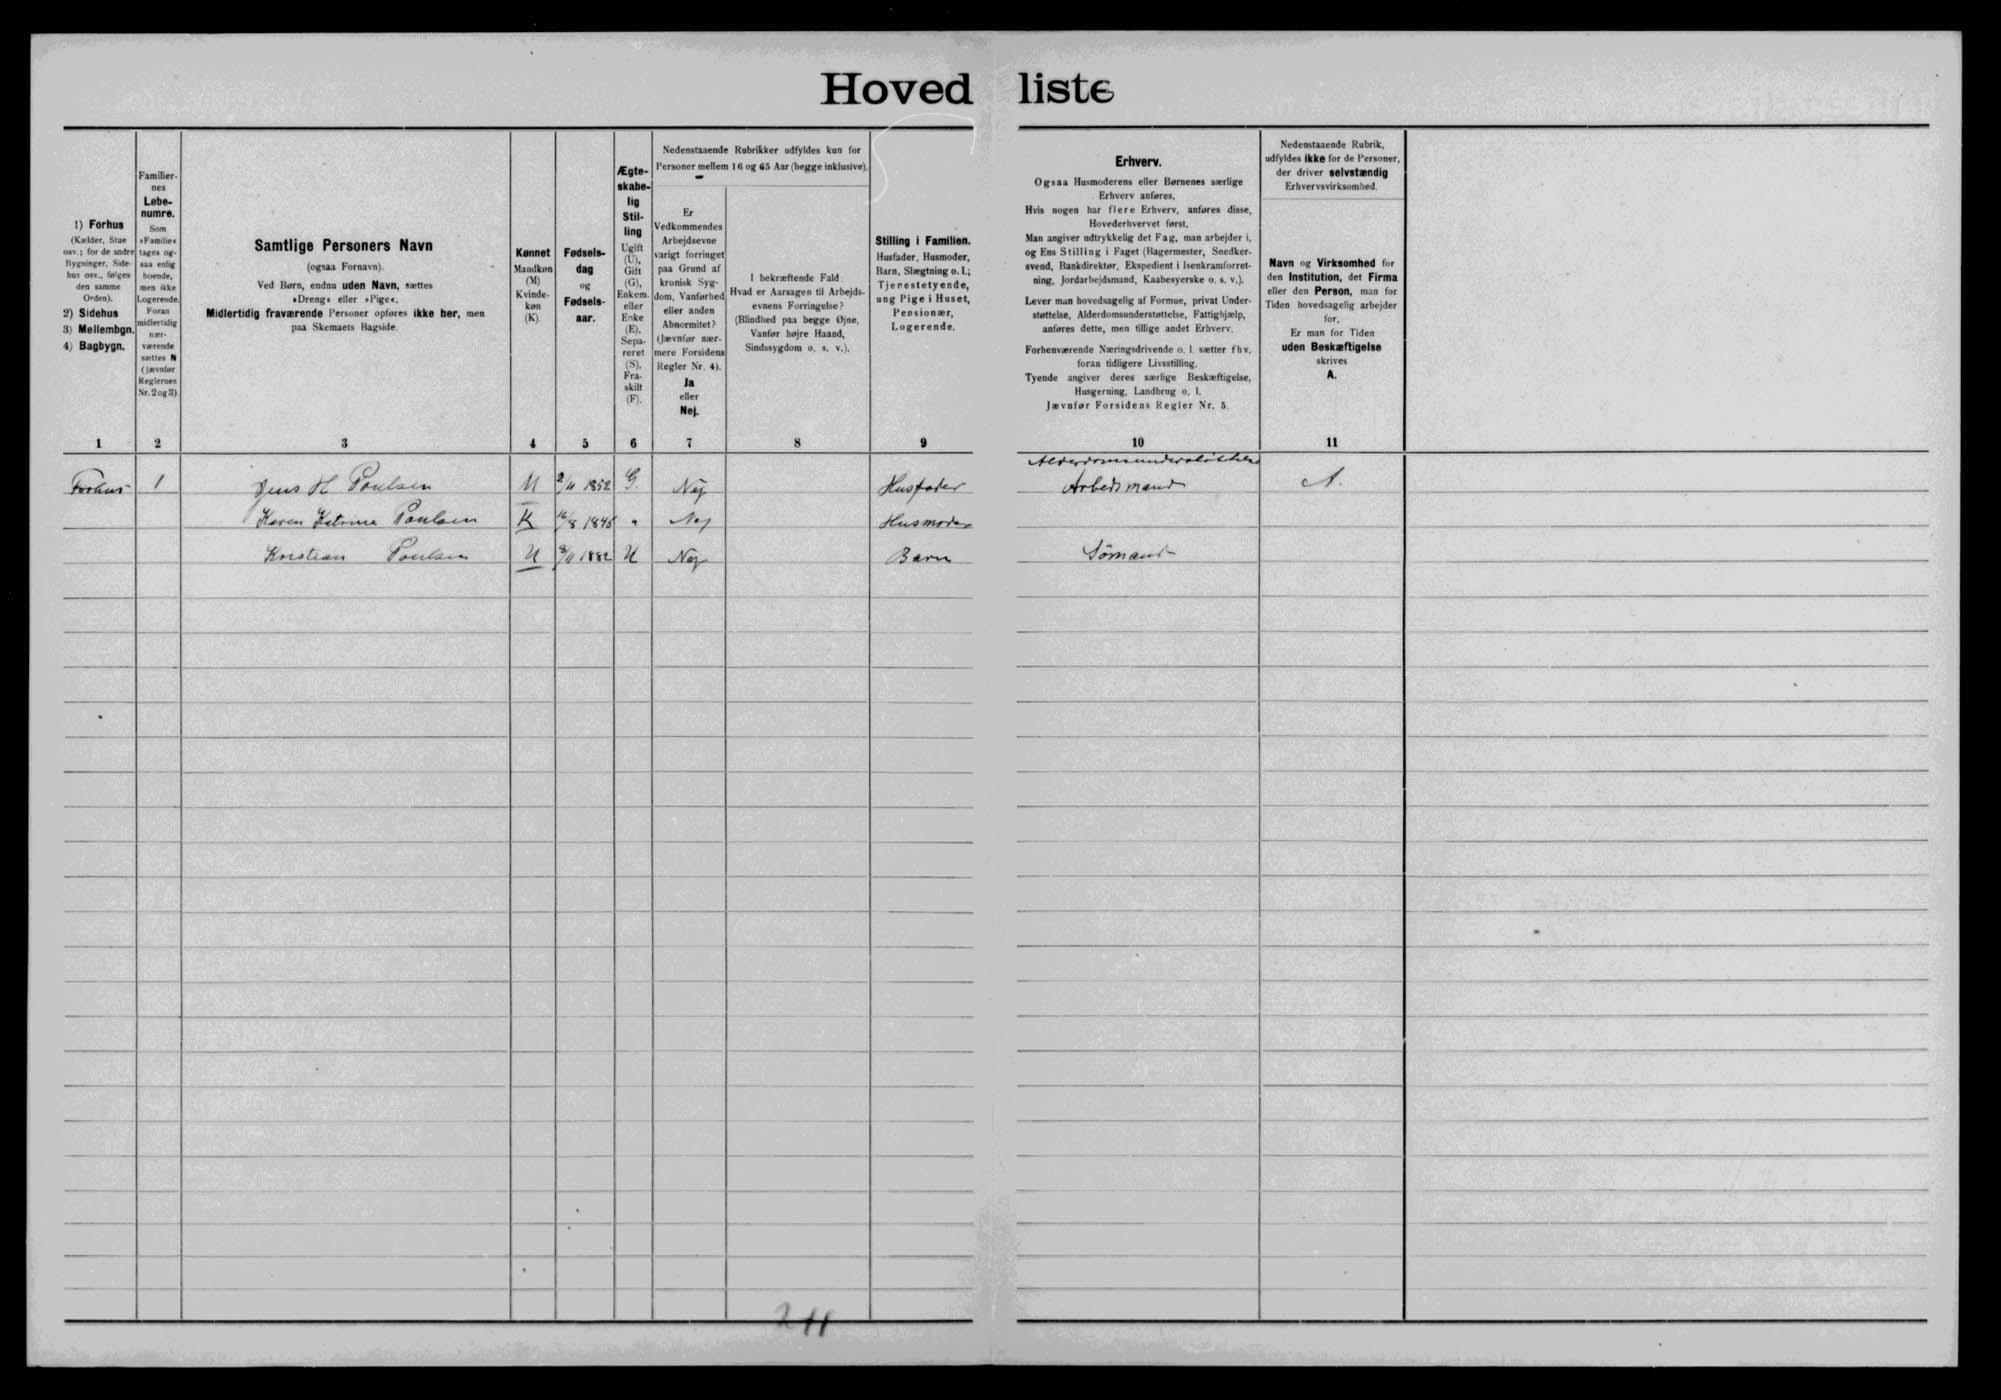 Hovedliste
1) Forhus
(Kælder, Stue
osv.; for de andre
Bygninger, Side-
hus osv., følges
den samme
Orden).
2) Sidehus
3) Mellembgn.
4) Bagbygn.
Familier-
nes
Løbe-
numre.
Som
»Familie«
tages og-
saa enlig
boende,
men ikke
Logerende.
Foran
midlertidig
nær-
værende
sættes N
(jævnfør
Reglernes
Nr. 2 og 3)
Samtlige Personers Navn
(ogsaa Fornavn).
Ved Børn, endnu uden Navn, sættes
»Dreng« eller »Pige«.
Midlertidig fraværende Personer opføres ikke her, men
paa Skemaets Bagside.
Kønnet
Mandkøn
(M)
Kvinde-
køn
(K).
Fødsels-
dag
og
Fødsels-
aar.
Ægte-
skabe-
lig
Stil-
ling
Ugift
(U),
Gift
(G),
Enkem.
eller
Enke
(E),
Sepa-
reret
(S),
Fra-
skilt
(F).
Nedenstaaende Rubrikker udfyldes kun for
Personer mellem 16 og 65 Aar (begge inklusive).
Er
Vedkommendes
Arbejdsevne
varigt forringet
paa Grund af
kronisk Syg-
dom, Vanførhed
eller anden
Abnormitet?
(Jævnfør nær-
mere Forsidens
Regler Nr. 4).
Ja
eller
Nej.
I bekræftende Fald:
Hvad er Aarsagen til Arbejds-
evnens Forringelse?
(Blindhed paa begge Øjne,
Vanfør højre Haand,
Sindssygdom o. s. v.).
Stilling i Familien.
Husfader, Husmoder,
Barn, Slægtning o. l.;
Tjenestetyende,
ung Pige i Huset,
Pensionær,
Logerende.
Erhverv.
Ogsaa Husmoderens eller Børnenes særlige
Erhverv anføres.
Hvis nogen har flere Erhverv, anføres disse,
Hovederhvervet først.
Man angiver udtrykkelig det Fag, man arbejder i,
og Ens Stilling i Faget (Bagermester, Snedker-
svend, Bankdirektør, Ekspedient i Isenkramforret-
ning, Jordarbejdsmand, Kaabesyerske o. s. v.).
Lever man hovedsagelig af Formue, privat Under-
støttelse, Alderdomsunderstøttelse, Fattighjælp,
anføres dette, men tillige andet Erhverv.
Forhenværende Næringsdrivende o. l. sætter fhv.
foran tidligere Livsstilling.
Tyende angiver deres særlige Beskæftigelse,
Husgerning, Landbrug o. l.
Jævnfør Forsidens Regler Nr. 5.
Nedenstaaende Rubrik,
udfyldes ikke for de Personer,
der driver selvstændig
Erhvervsvirksomhed.
Navn og Virksomhed for
den Institution, det Firma
eller den Person, man for
Tiden hovedsagelig arbejder
for.
Er man for Tiden
uden Beskæftigelse
skrives
A.
1 2 3 4 5 6 7 8 9 10 11
Alderdomsunderstøttelse
Forhus 1 Jens H Poulsen M 2/11 1852 G. Nej Husfader Arbedsmand A.
Karen Katrine Poulsen K 16/8 1845 " Nej Husmoder
Kristian Poulsen M 8/11 1882 U Nej Barn Sömand
211